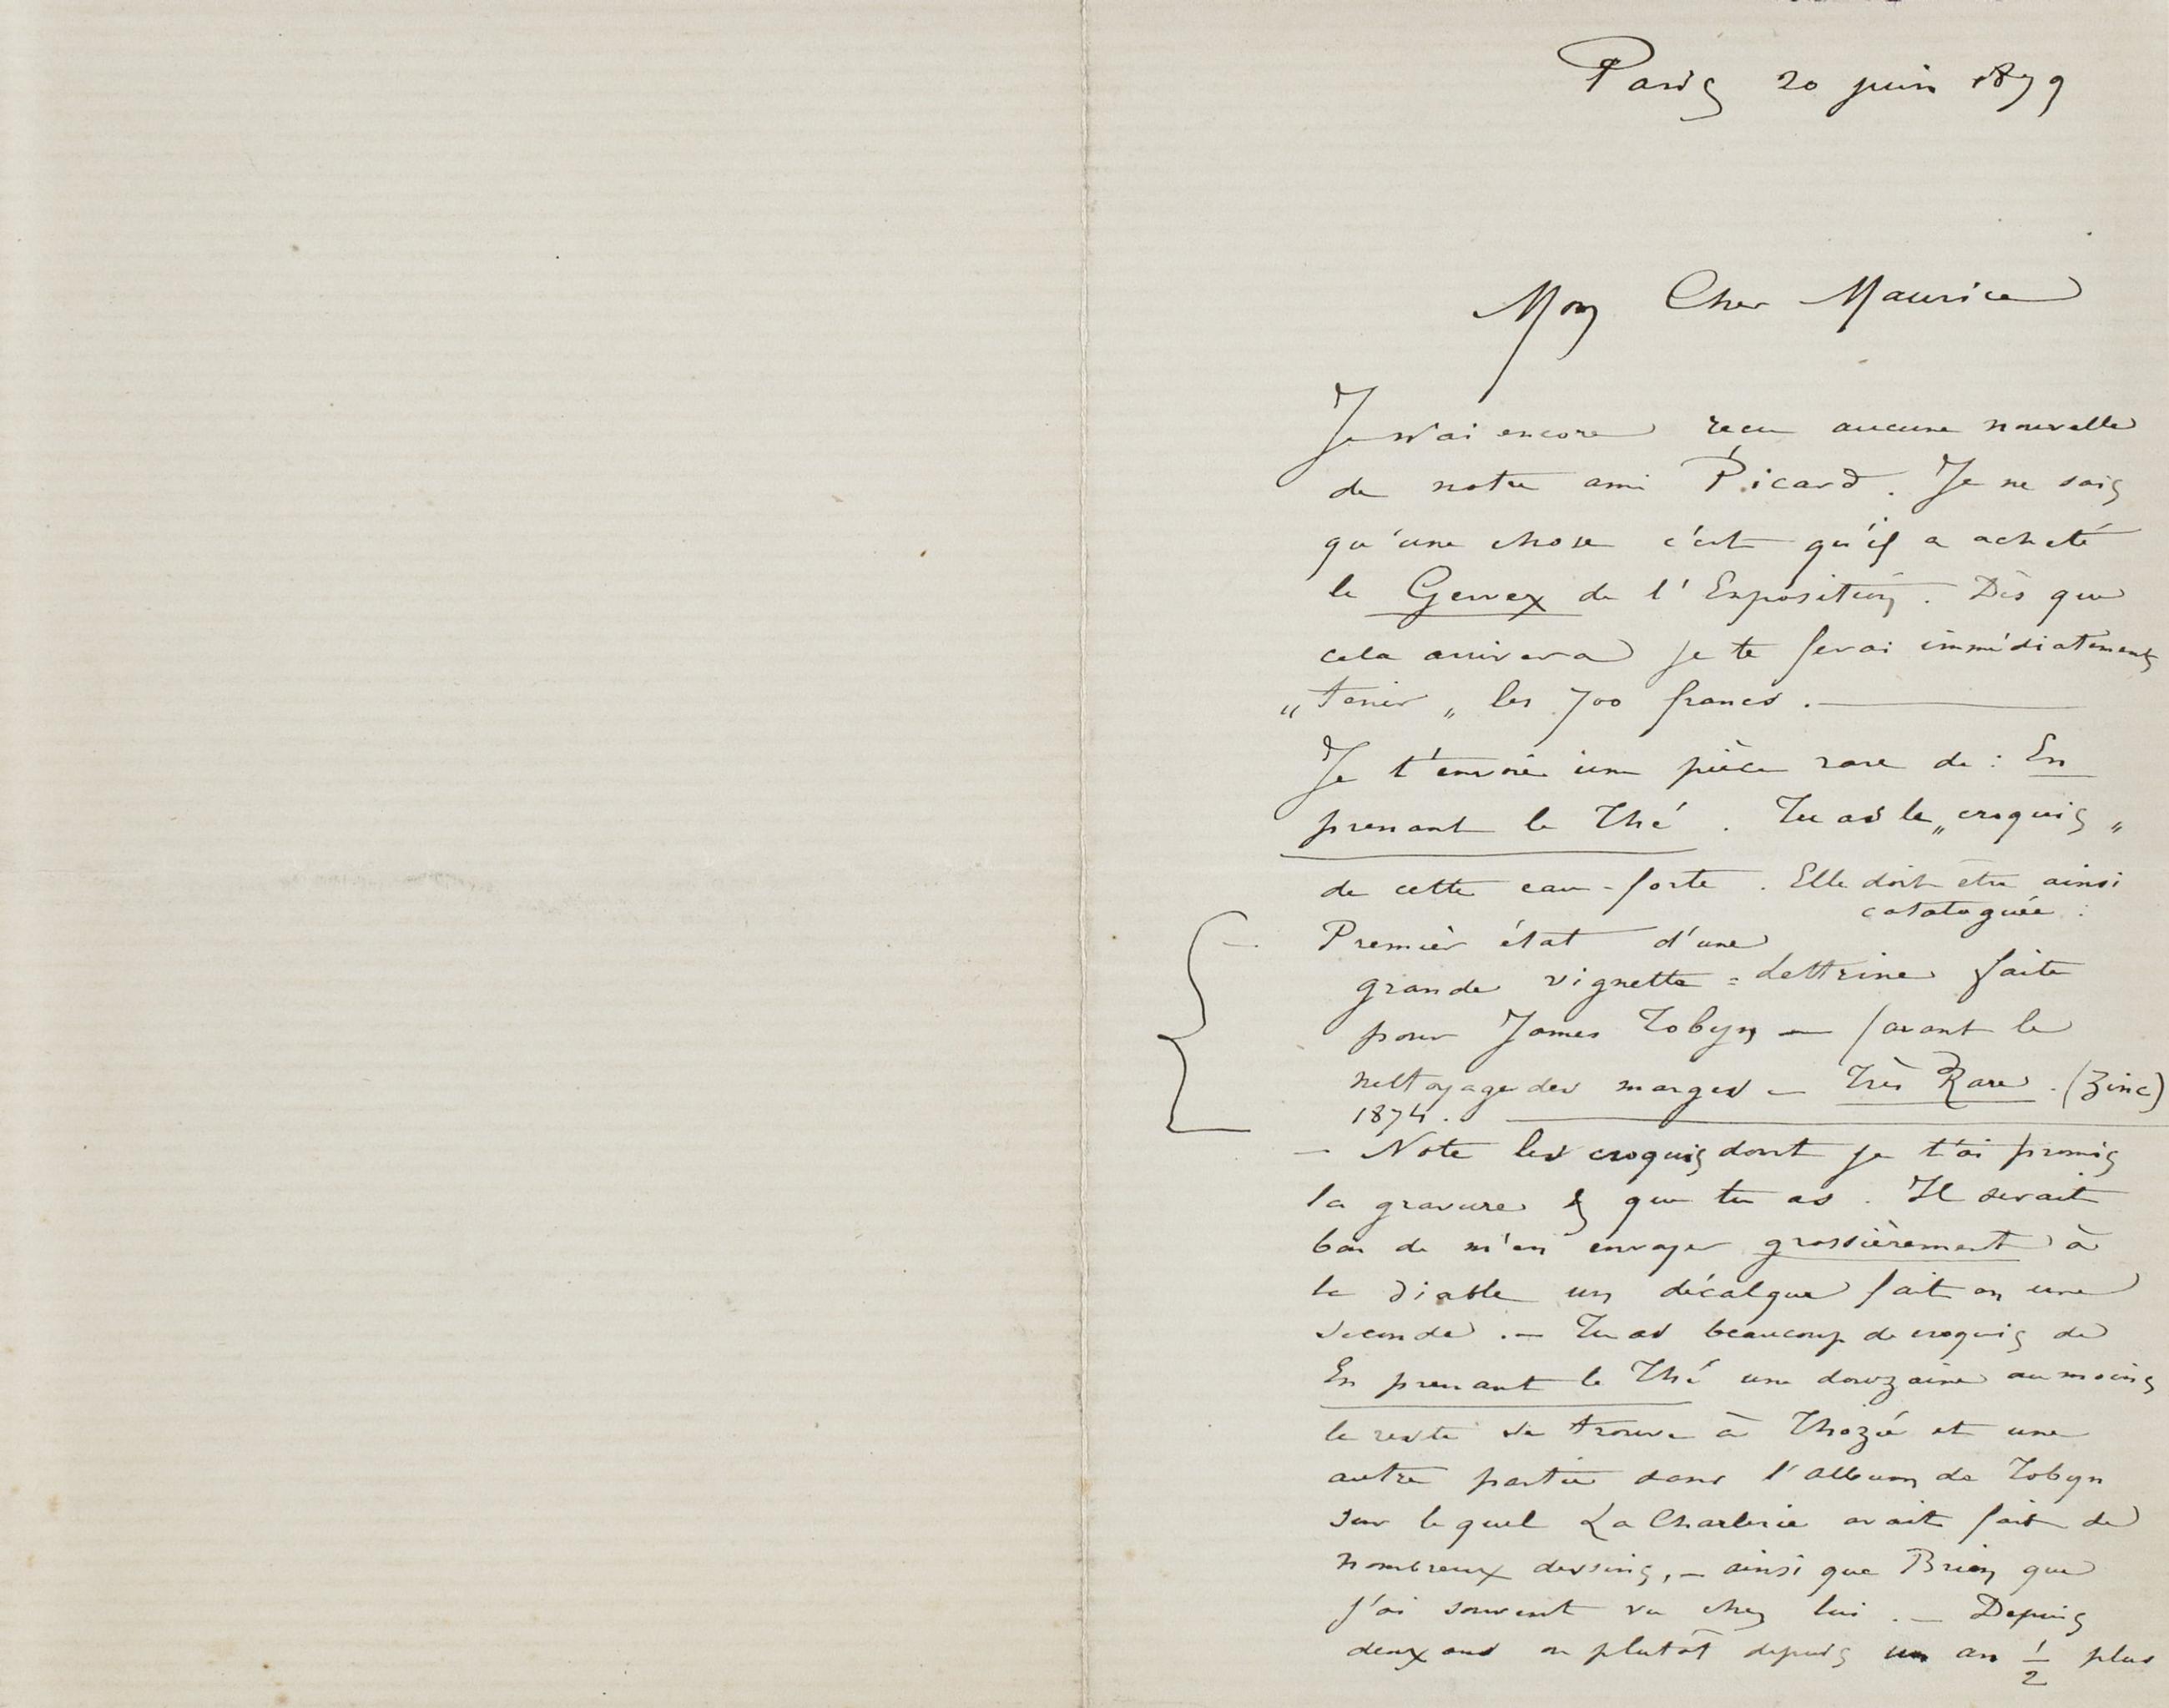 Paris 20 juin 1879
Mon Cher Maurice
Je n'ai encore reçu aucune nouvelle
de notre ami Picard. Je ne sais
qu'une chose c'est qu'il a acheté
le Gervex de l'Exposition. Dès que
cela arrivera je te ferai immédiatement
„ tenir „ les 700 francs. —
Je t'envoie une pièce rare de : En
prenant le Thé. Tu as le „ croquis „
de cette eau-forte. Elle doit être ainsi
cataloguée :
— Premier état d'une
grande vignette = lettrine faite
pour James Tobyn — (avant le
nettoyage des marges — Très Rare. (Zinc)
1874. —
— Note les croquis dont je t'ai promis
la gravure & que tu as. Il serait
bon de m'en envoyer grossièrement à
la diable un décalque fait en une
seconde. — Tu as beaucoup de croquis de
En prenant le Thé une douzaine au moins
le reste se trouve à Thozée et une
autre partie dans l'album de Tobyn
sur lequel La Charlerie avait fait de
nombreux dessins, — ainsi que Brion que
j'ai souvent vu chez lui. — Depuis
deux ans ou plutôt depuis un an 1/2 plus